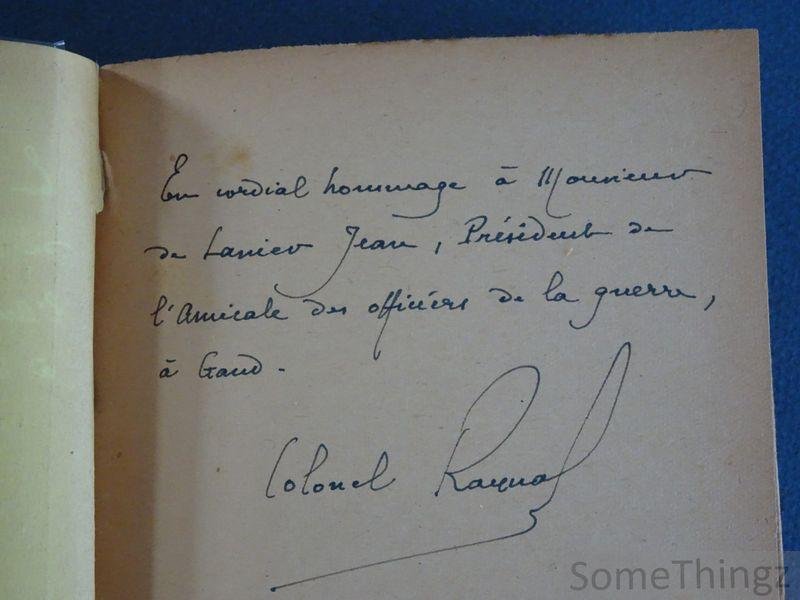 En cordial hommage à Monsieur
de Lanier Jean, Président de
l'Amicale des officiers de la guerre,
à Gand.
Colonel Raynal
SomeThingz